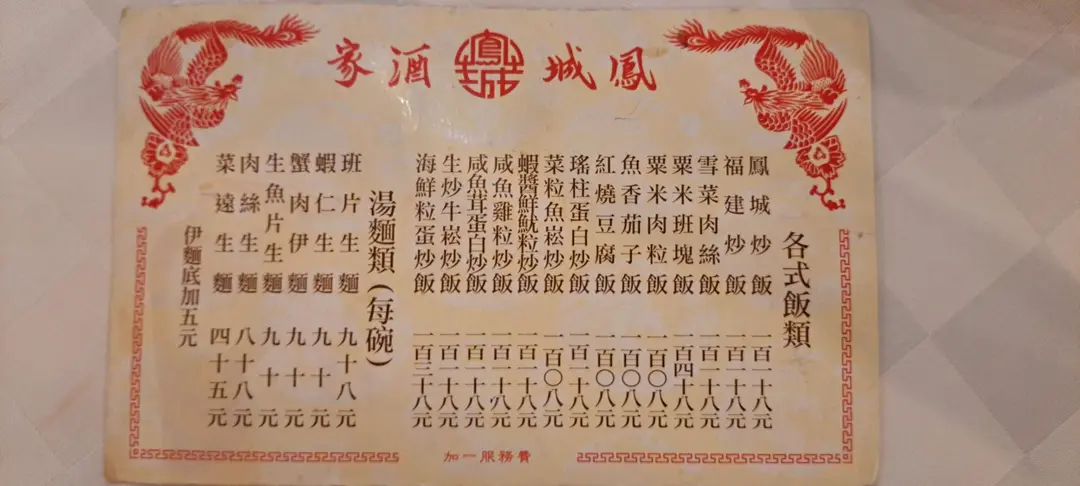 鳳城酒家
鳳城
各式飯類
鳳城炒飯 一百一十八元
福建炒飯 一百一十八元
雪菜肉絲飯 一百一十八元
粟米班塊飯 一百四十八元
粟米肉粒飯 一百〇八元
魚香茄子飯 一百〇八元
紅燒豆腐飯 一百〇八元
瑤柱蛋白炒飯 一百一十八元
菜粒魚崧炒飯 一百〇八元
蝦醬鮮魷粒炒飯 一百一十八元
咸魚雞粒炒飯 一百一十八元
咸魚茸蛋白炒飯 一百一十八元
生炒牛崧炒飯 一百一十八元
海鮮粒蛋炒飯 一百三十八元
湯麵類(每碗)
班片生麵 九十八元
蝦仁生麵 九十元
蟹肉伊麵 九十元
生魚片生麵 九十元
肉絲生麵 八十八元
菜遠生麵 四十五元
伊麵底加五元
加一服務費